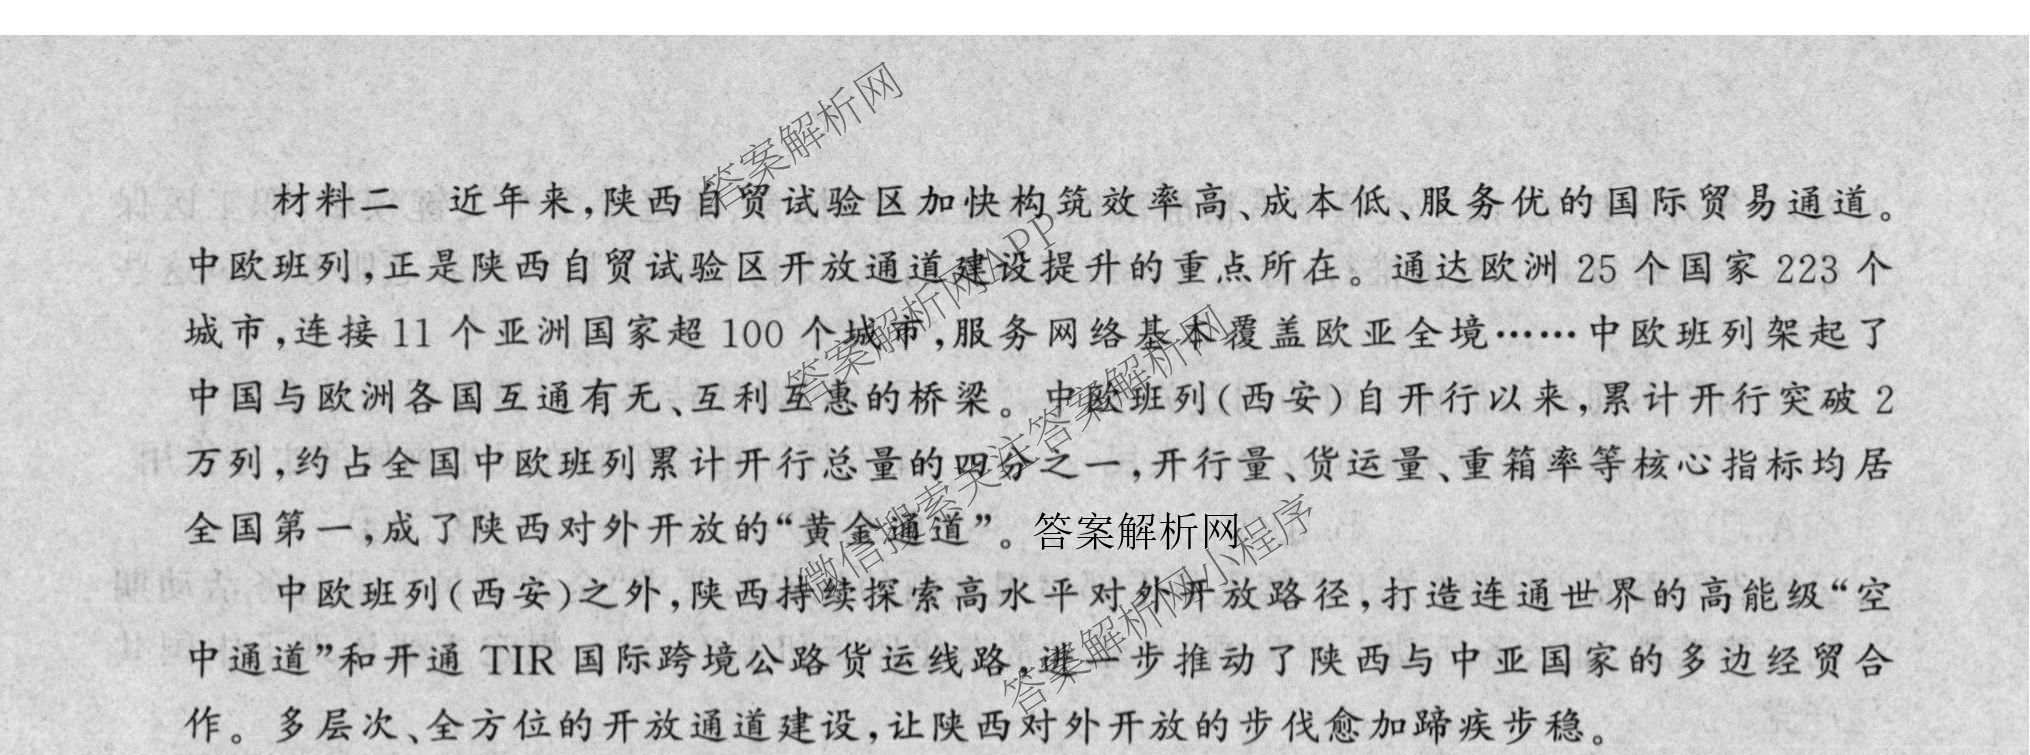 材料二 近年来,陕西自贸试验区加快构筑效率高、成本低、服务优的国际贸易通道。
中欧班列,正是陕西自贸试验区开放通道建设提升的重点所在。通达欧洲 25 个国家 223 个
城市,连接 11 个亚洲国家超 100 个城市,服务网络基本覆盖欧亚全境……中欧班列架起了
中国与欧洲各国互通有无、互利互惠的桥梁。中欧班列(西安)自开行以来,累计开行突破 2
万列,约占全国中欧班列累计开行总量的四分之一,开行量、货运量、重箱率等核心指标均居
全国第一,成了陕西对外开放的“黄金通道”。答案解析网
中欧班列(西安)之外,陕西持续探索高水平对外开放路径,打造连通世界的高能级“空
中通道”和开通 TIR 国际跨境公路货运线路,进一步推动了陕西与中亚国家的多边经贸合
作。多层次、全方位的开放通道建设,让陕西对外开放的步伐愈加蹄疾步稳。
答案解析网
答案解析网APP
微信搜索关注答案解析网
答案解析网小程序